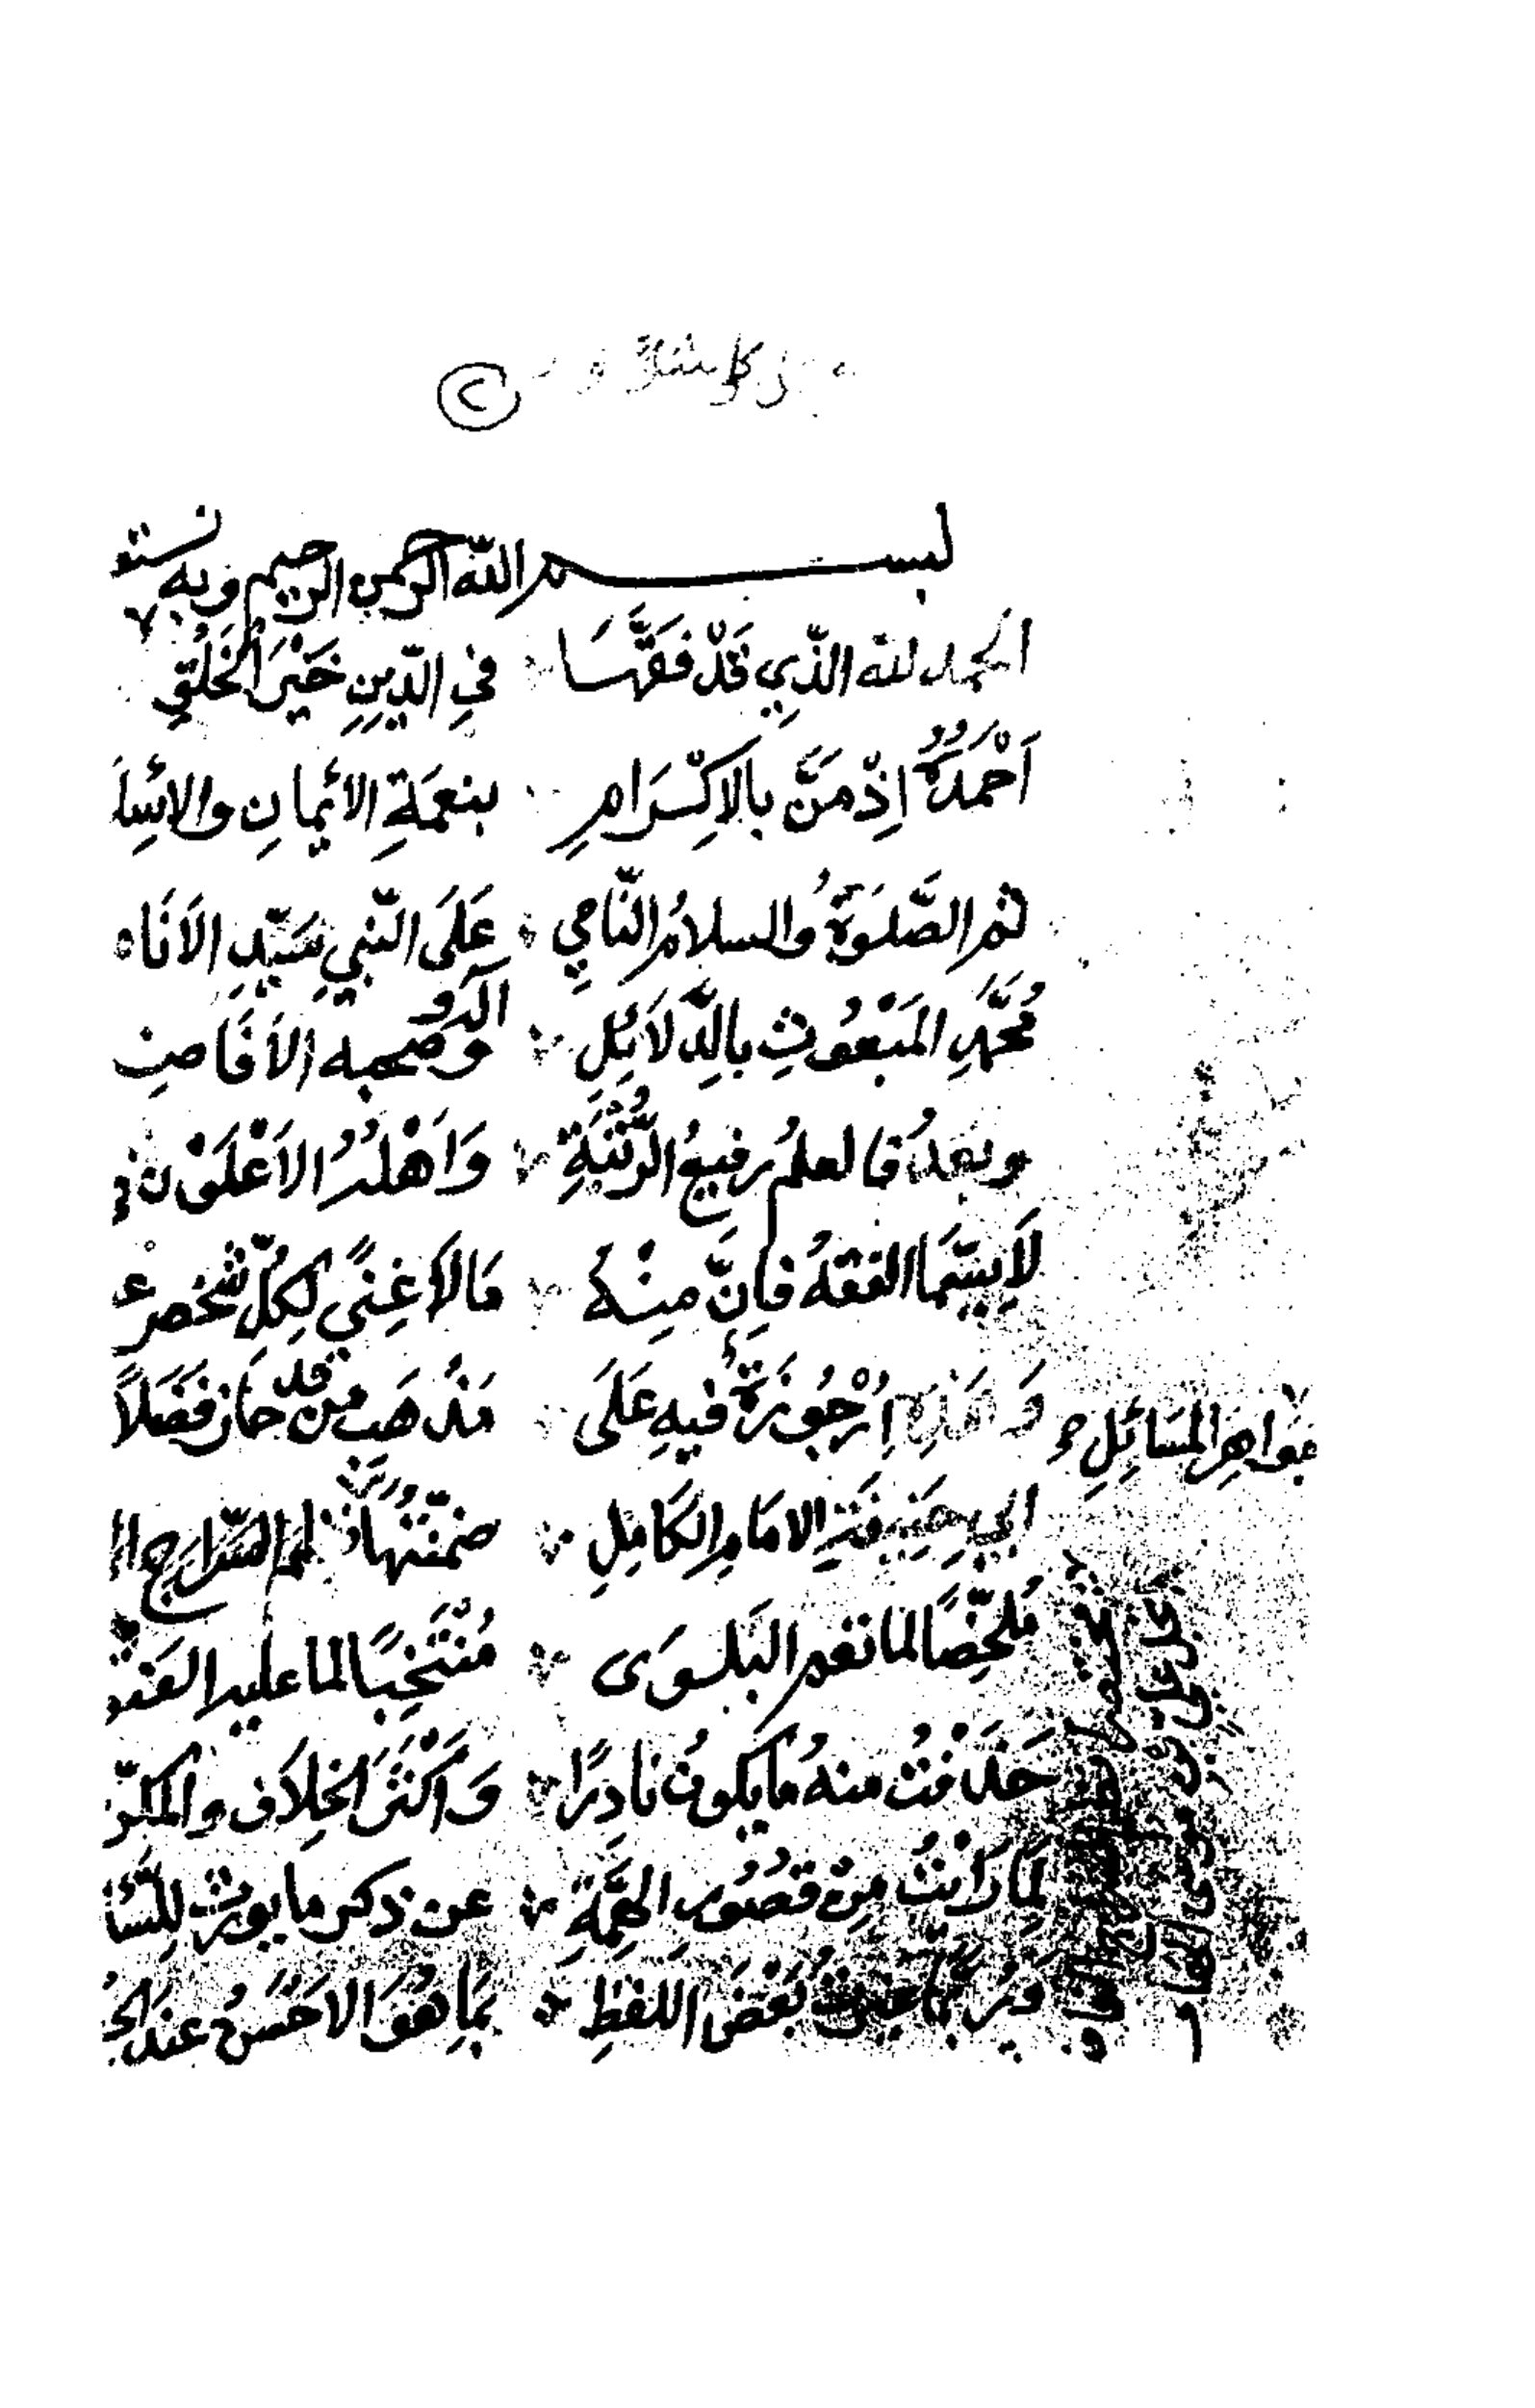 بسم الله الرحمن الرحيم وبه نستو
الحمد لله الذِي قَدْ فَقَّهَنَا في الدِّينِ خَيْرَ الْخَلْقِ
اَحْمَدُهُ اِذْ مَنَّ بالاِكْرَامِ بنعمَةِ الائيمانِ والاسِلَا
ثم الصَّلوَةُ والسلامُ النَّامِي عَلَى النَّبِي سَيِّدِ الاَنَا
مُحَمَّدِ المَبْعُوثِ بالدَّلَائِلِ وآله وصحبه الاَفَاضِ
وبعدُ فالعلمُ رفيعُ الرُّتْبَةِ وَاَهْلُهُ الاَعْلَوْنَ
لاَ سِيَّمَا الفقهُ فاِنَّ مِنْهُ مَا لاَ غِنىً لِكُلِّ شخصٍ ع
وَهَذِهِ اُرْجُوزَةٌ فيهِ عَلَى مَذْهَبِ من قد حَازَ فَضَلاً
جواهِر المسَائِلِ
ابي حَنِيفَةِ الامَامِ الكَامِلِ ضمَّنتُهَا دُرَرَ نظم السّراج ا
مُلَخِّصًا لما تعم البَلوَى مُنْتَخِبًا لما عليه الفَتْو
حَذَفْتُ منهُ ما يكونُ نادرًا وَاَكْثَرَ الخِلاَف والمكرّ
لِمَا رَاَيْتُ مِنْ قصُورِ الهِمَّةِ عن ذكر ما يورث لِلسَّأ
وَرُبَّمَا غيرتُ بَعْضَ اللفظِ بمَا هُوَ الاحْسَنُ عند الح